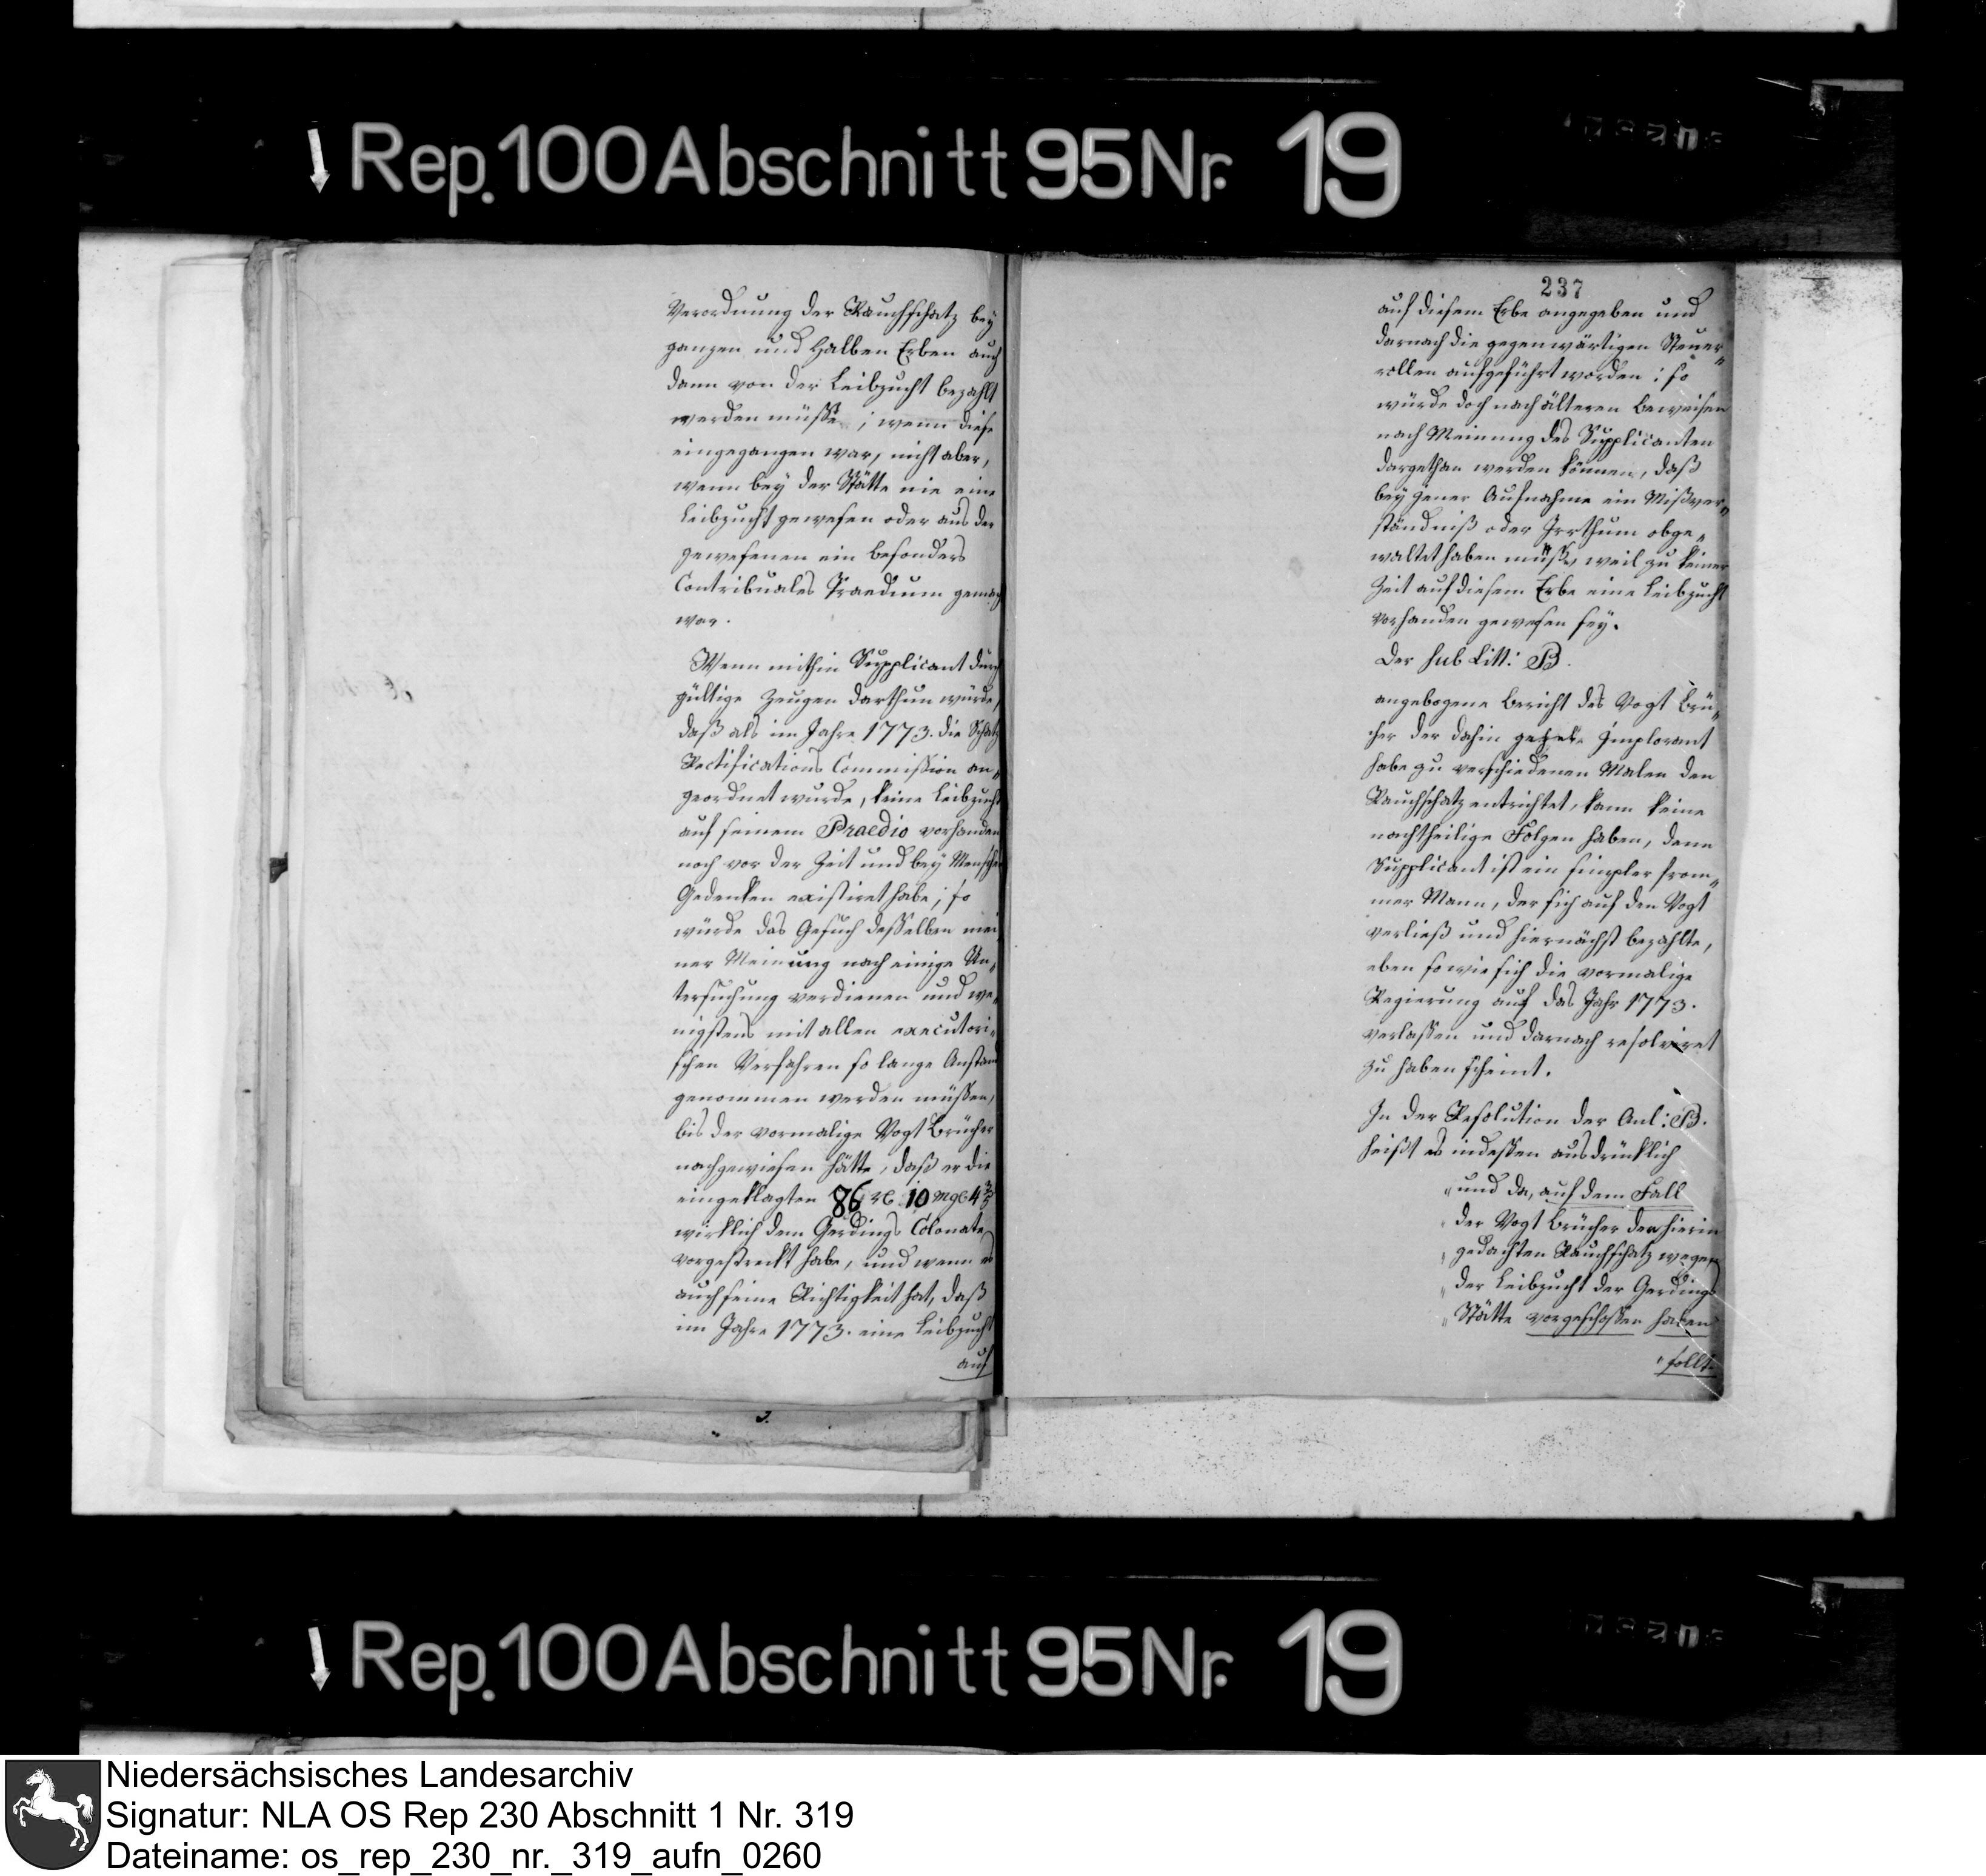 Rep. 100 Abschnitt 95 Nr. 19
Verordnung der Rauchschatz bey
ganzen und Halben Erben auch
dann von der Leibzucht bezahlt
werden müsste; wenn diese
eingegangen war, nicht aber,
wenn bey der Stätte nie eine
Leibzucht gewesen oder aus der
gewesenen ein besonders
Contribuales Praedium gemach
war.
Wenn mithin Supplicant durch
gültige Zeugen darthun würde,
daß als im Jahre 1773. die Schatz
Rectifications Commission an„
geordnet wurde, keine Leibzucht
auf seinem Praedio vorhanden
noch vor der Zeit und bey Menschen
Gedenken existiret habe; so
würde das Gesuch desselben mei
ner Meinung nach einige Un„
tersuchung verdienen und we„
nigstens mit allen executori„
schen Verfahren so lange Anstand
genommen werden müssen,
bis der vormalige Vogt Brücher
nachgewiesen hätte, daß er die
eingeklagten 86 10 mge 4
wirklich dem Gerdings Colonate
vorgestreckt habe, und wenn es
auch seine Richtigkeit hat, daß
im Jahre 1773. eine Leibzucht
auf
237
auf diesem Erbe angegeben und
darnach die gegenwärtigen Steuer„
rollen aufgeführt worden: so
würde doch nach älteren Beweisen
nach Meinung des Supplicanten
dargethan werden können, daß
bey jener Aufnahme ein Mißver„
ständniß oder Irrthum obge„
waltet haben müße, weil zu keiner
Zeit auf diesem Erbe eine Leibzucht
vorhanden gewesen sey.
Der sub Litt: B.
angebogene Bericht des Vogt Brü„
cher der dahin gehet: Implorant
habe zu verschiedenen Malen den
Rauchschatz entrichtet, kann keine
nachtheilige Folgen haben, denn
Supplicant ist ein simpler from„
mer Mann, der sich auf den Vogt
verließ und hiernächst bezahlte,
eben so wie sich die vormalige
Regierung auf das Jahr 1773.
verlassen und darnach resolviret
zu haben scheint.
In der Resolution der Anl: B.
heißt es indessen ausdrücklich
„und da, auf dem Fall
„der Vogt Brücher den hierin
„gedachten Rauchschatz wegen
„der Leibzucht der Gerdings
„Stätte vorgeschossen haben
„sollte
Rep. 100 Abschnitt 95 Nr. 19
Niedersächsisches Landesarchiv
Signatur: NLA OS Rep 230 Abschnitt 1 Nr. 319
Dateiname: os_rep_230_nr._319_aufn_0260